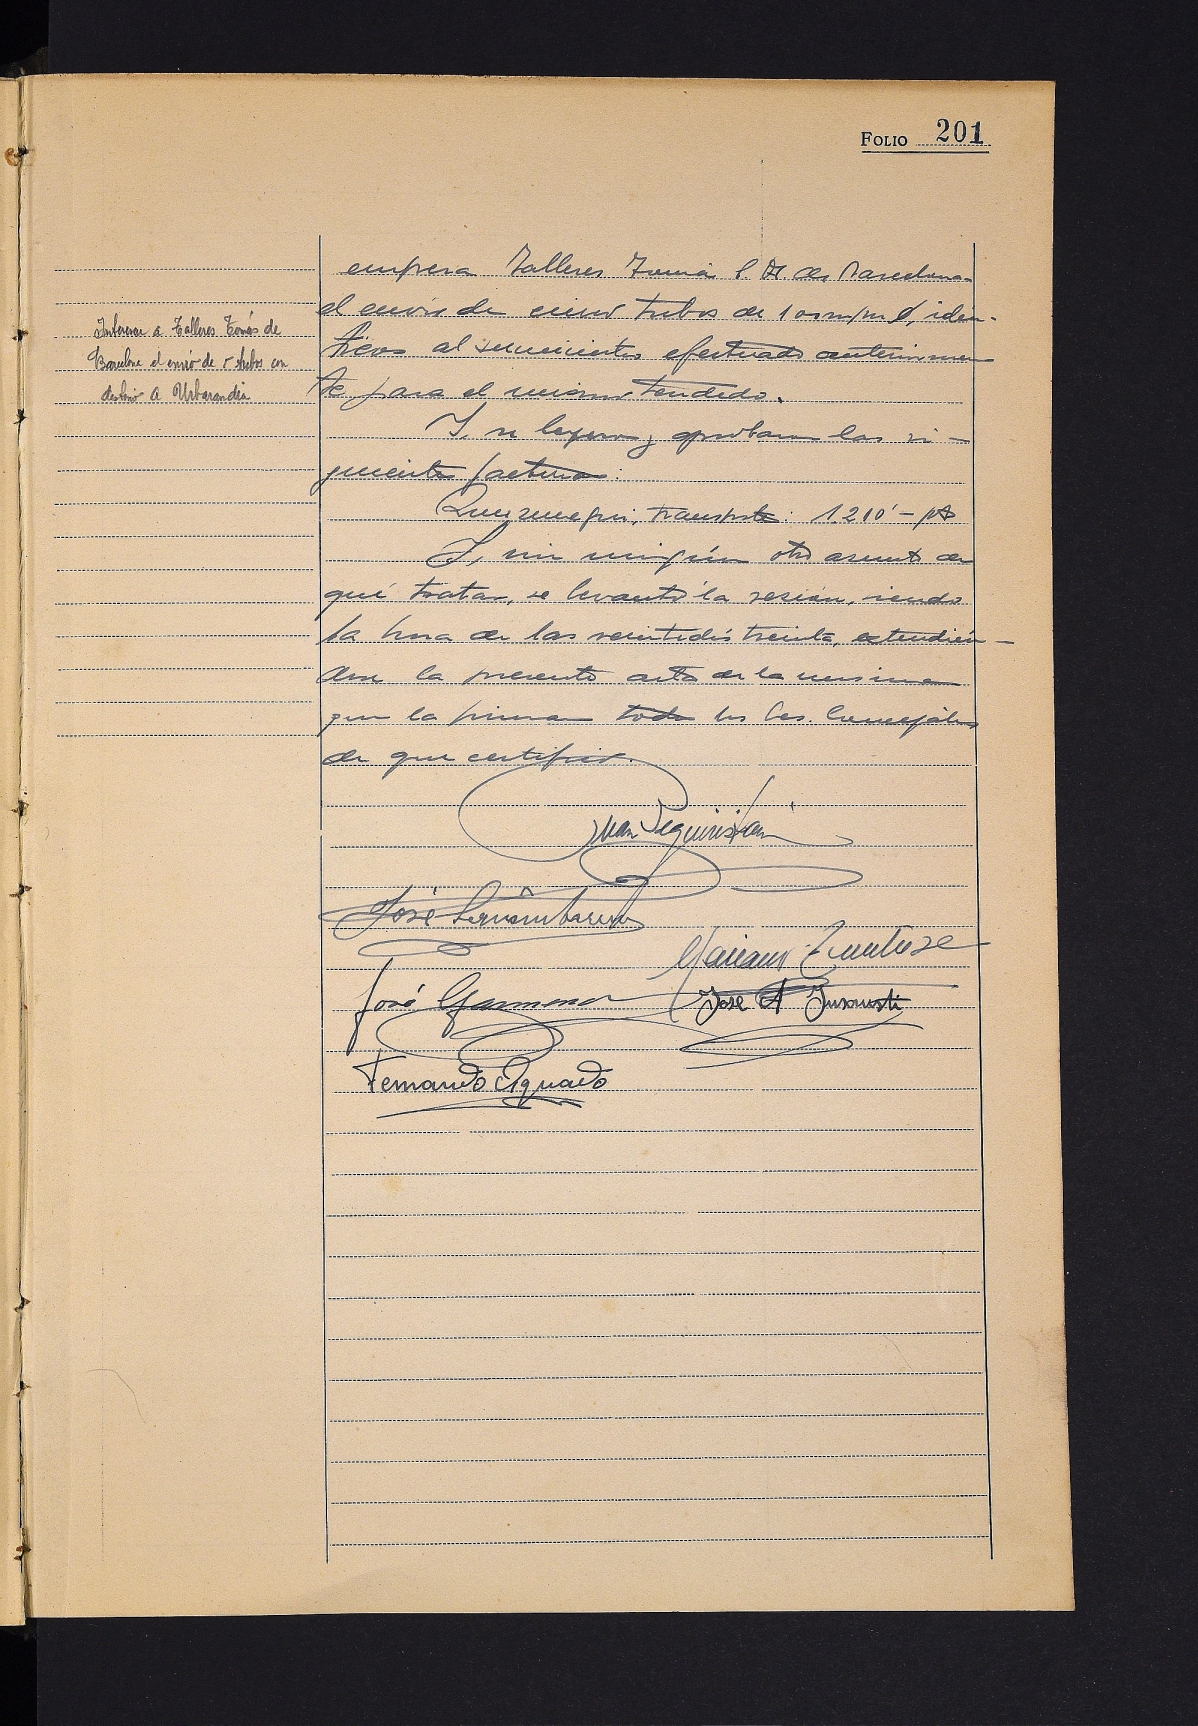 FOLIO 201
empresa Talleres Tomás S. A. de Barcelona
el envio de cinco tubos de 100 m/m, idén-
ticos al suministro efectuado anteriormen
te para el mismo tendido.
Interesar a Talleres Tomás de
Barcelona el envio de 5 tubos con
destino a Urbarandia
Y, se leyeron y aprobaron las si-
guientes facturas:
transporte: 1.210'- pts
Y, sin ningún otro asunto de
qué tratar, se levantó la sesión, siendo
la hora de las veintidós treinta, extendién-
dose la presente acta de la misma
que la firman todos los Srs. Concejales
de que certifico.
Juan Eguiristain
José
Mariano
José
José A.
Fernando Aguado